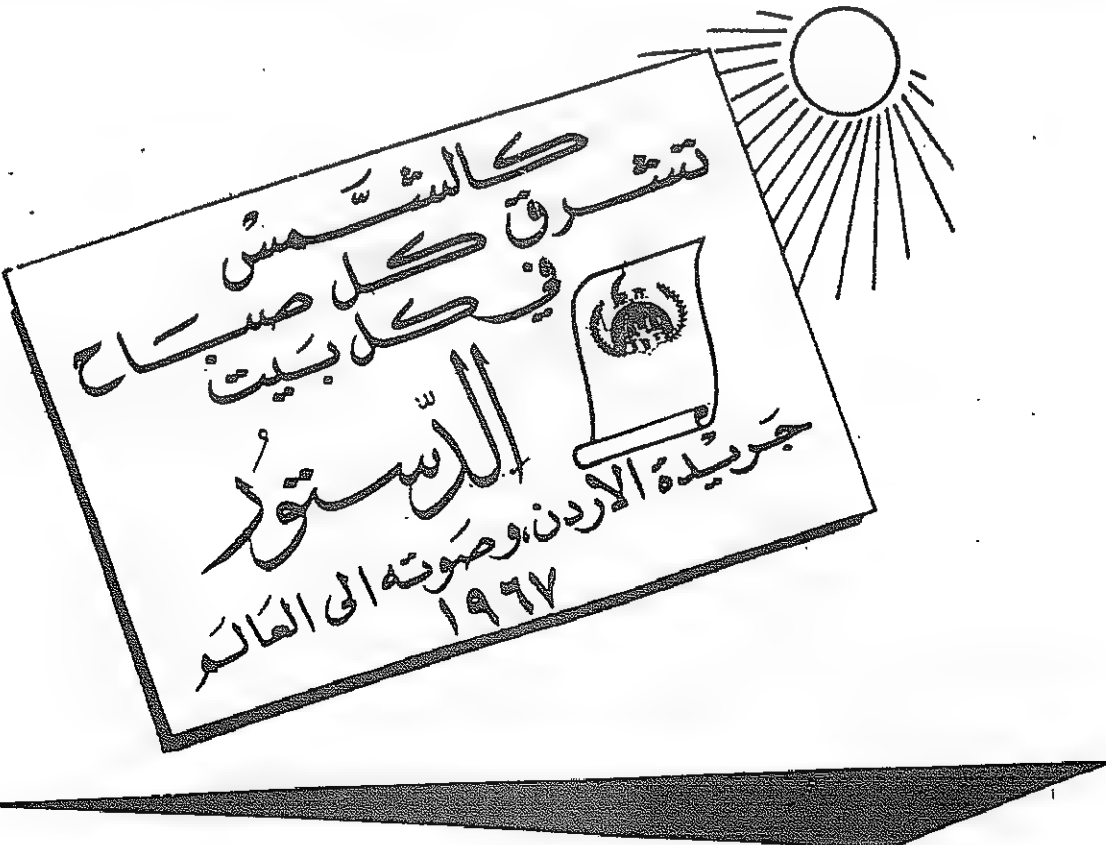 كالشَّمسْ
تشرق كل صبَاح
في كل بَيت
الدّستورْ
جَريْدة الاردن، وصَوته الى العَالَم
١٩٦٧